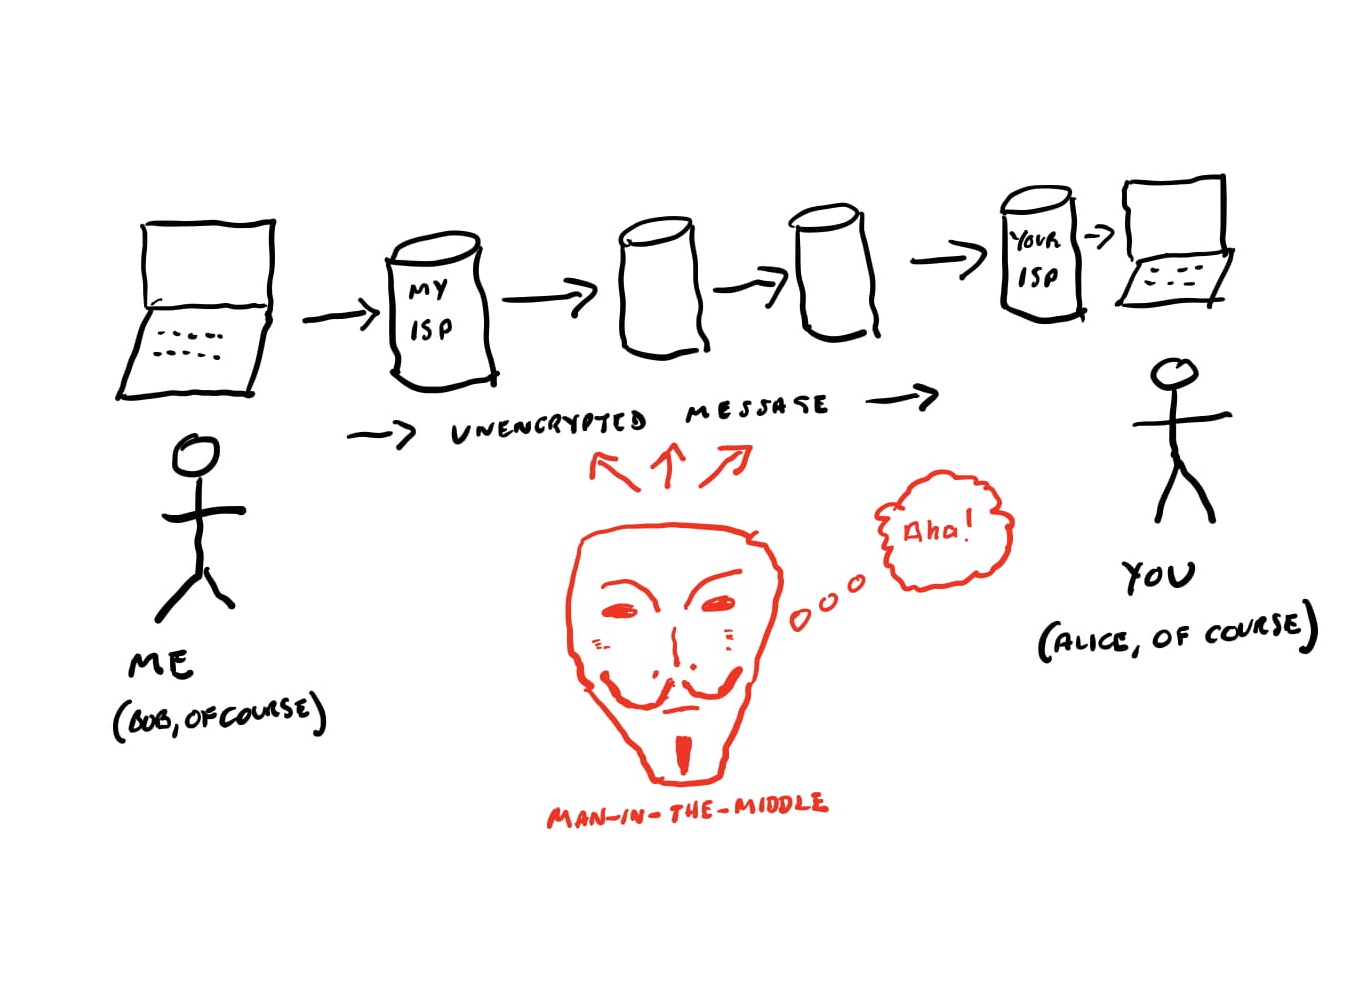 MY
ISP
YOUR
ISP
UNENCRYPTED MESSAGE
Aha!
ME
(BOB, OF COURSE)
YOU
(ALICE, OF COURSE)
MAN-IN-THE-MIDDLE